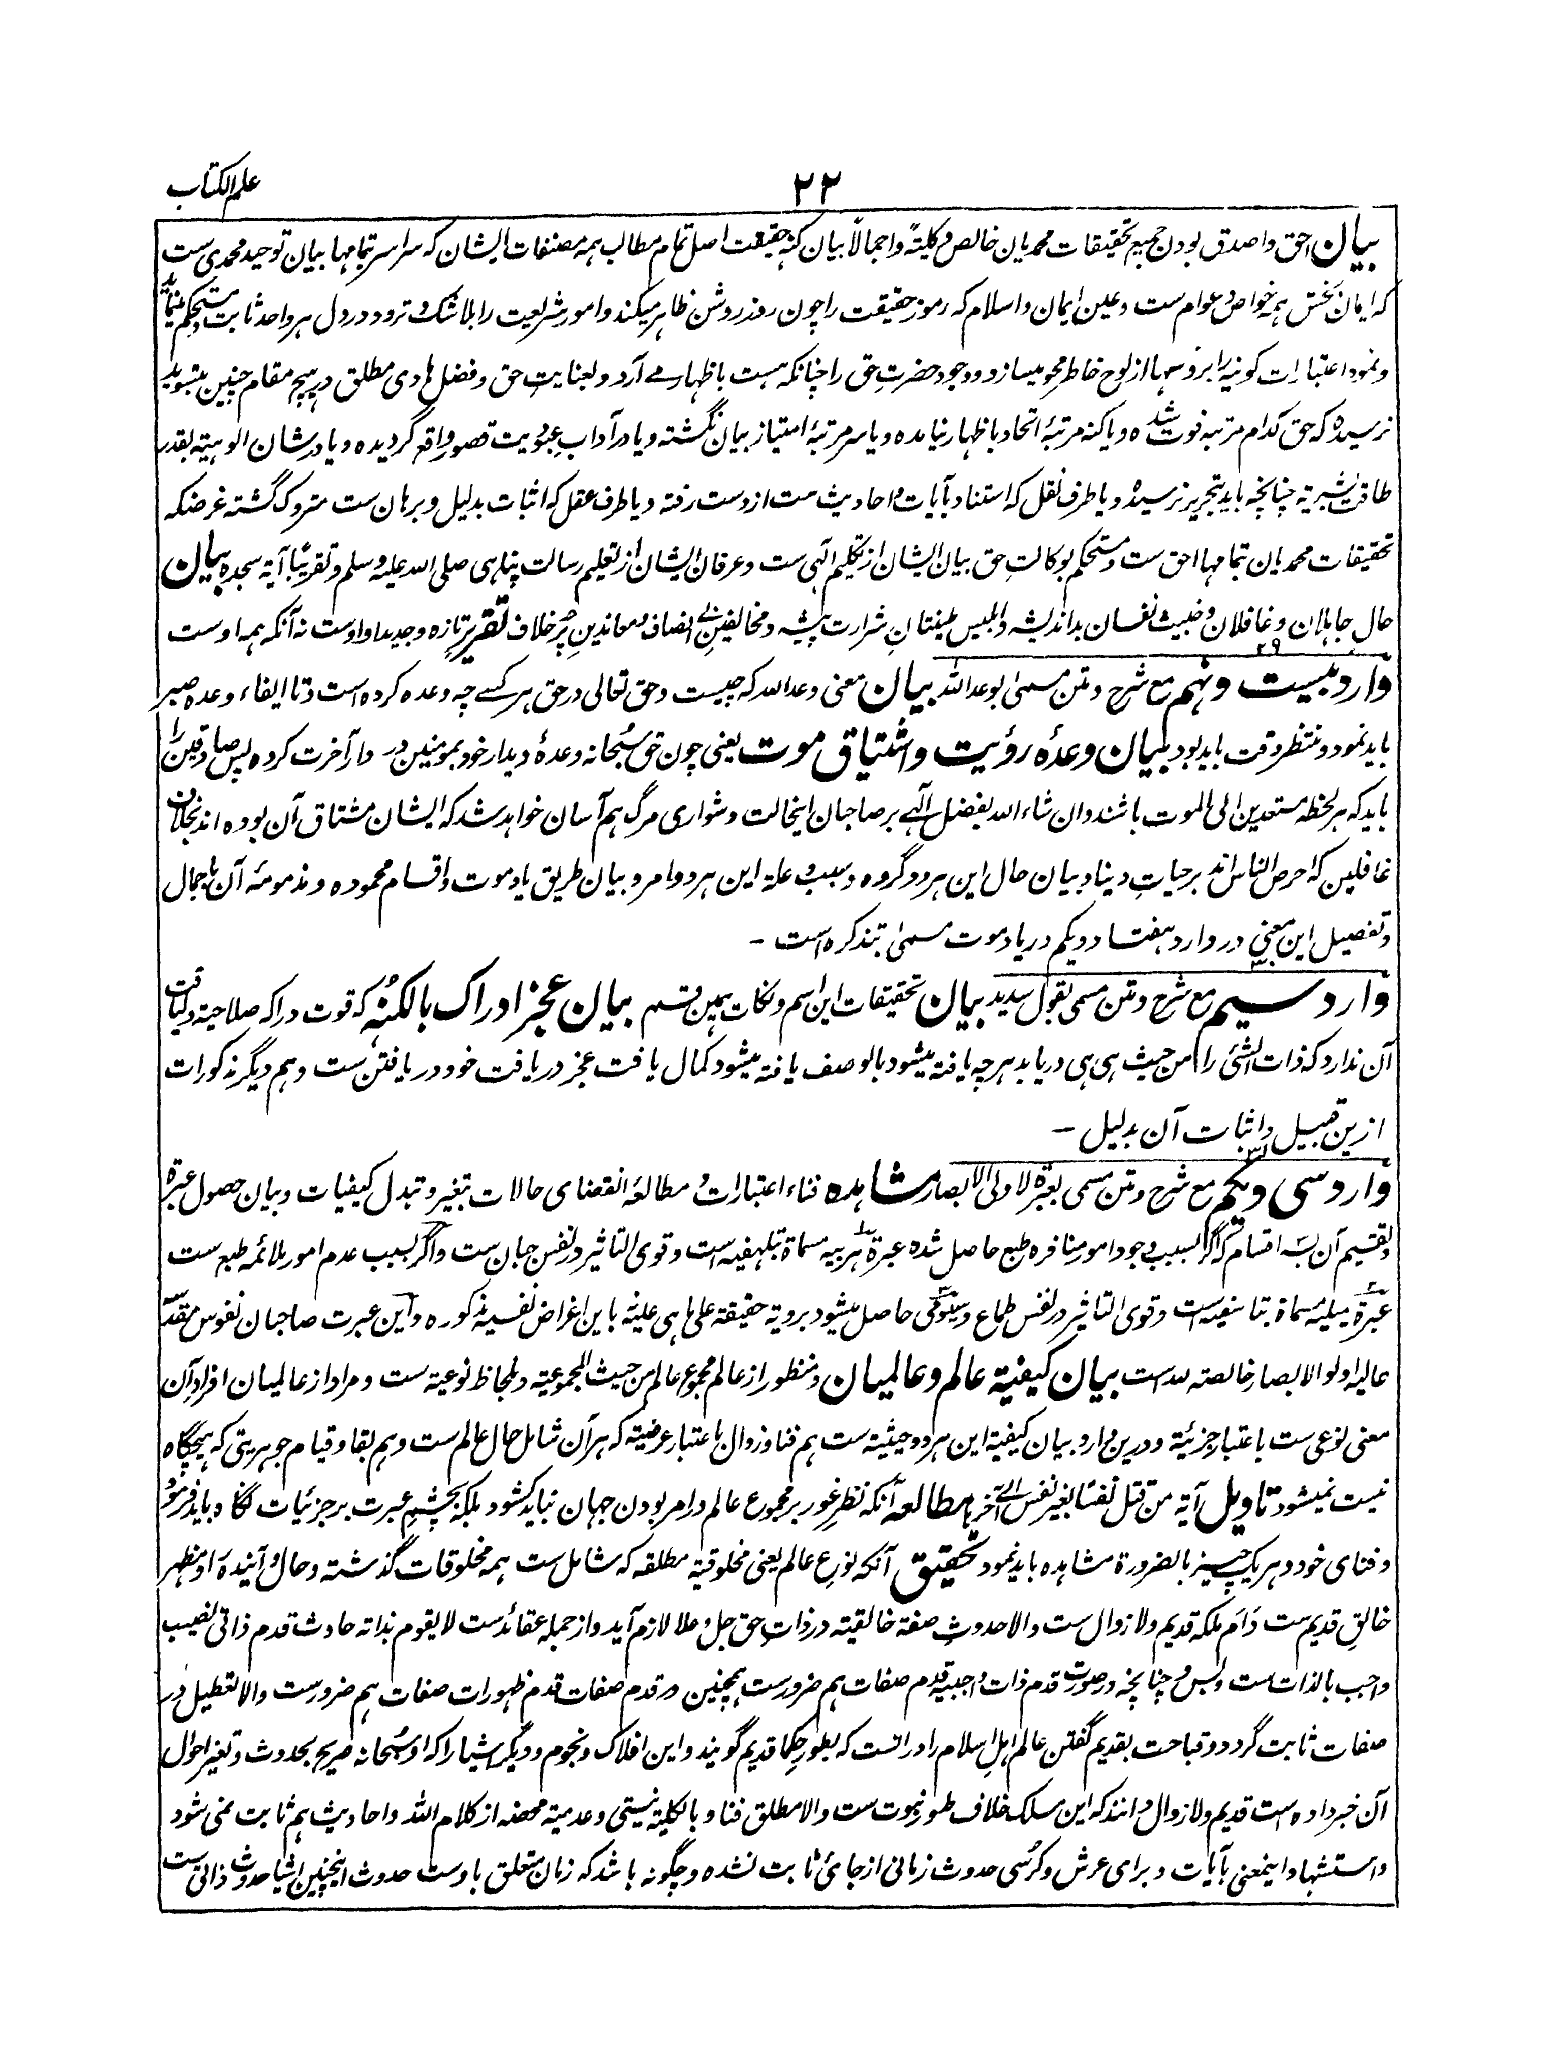 علم الکتاب
۲۲
بیان احق و اصدق بودن جمیع تحقیقات محمدیان خالص و کلیتہً و اجمالاً بیان کنہ حقیقت اصل تمام مطالب ہمہ مصنفات ایشان کہ سراسر بتمامہا بیان توحید محمدی ست
کہ ایمان بخش ہمہ خواص و عوام ست و عین ایمان و اسلام کہ رموز حقیقت را چون روز روشن ظاہر میکند و امور شریعت را بلا شک و تردد در دل ہر واحد ثابت و مستحکم مینماید
و نمود اعتبارات کونیہ را بزور سہا از لوح خاطر محو میسازد و وجود حضرت حق را چنانکہ ہست باظہار مے آرد و بعنایت حق و فضل ہادی مطلق در ہیچ مقام چنین بتسوید
نرسیدہ کہ حق کدام مرتبہ فوت شدہ و یا کنہ مرتبۂ اتحاد باظہار نیامدہ و یا سر مرتبۂ امتیاز بیان نگشتہ و یا در آداب عبودیت قصور واقع گردیدہ و یا در شان الوہیتہ بقدر
طاقت بشریتہ چنانچہ باید بتحریر نرسیدہ و یا طرف نقل کہ استناد بآیات و احادیث ست از دست رفتہ و یا طرف عقل کہ اثبات بدلیل و برہان ست متروک گشتہ غرضکہ
تحقیقات محمدیان بتمامہا احق ست و مستحکم بوکالت حق بیان ایشان از تکلیم الٰہی ست و عرفان ایشان از تعلیم رسالت پناہی صلی اللہ علیہ وسلم و تقریباً آیۃ سجدہ بیان
حال جاہلان و غافلان و خبیث نفسان بداندیشہ و ابلیس طینتان شرارت پیشہ و مخالفین بے انصاف و معاندین پرخلاف تقریر تازہ و جدید او اوست نہ آنکہ ہمہ اوست
۲۹
وارد بیست و نہم مع شرح و متن مسمیٰ بوعد اللہ بیان معنی وعد اللہ کہ چیست و حق تعالی در حق ہر کسے چہ وعدہ کردہ است و تا ایفاء وعدہ صبر
باید نمود و منتظر وقت باید بود بیان وعدہ رؤیت و اشتیاق موت یعنی چون حق سبحانہ وعدۂ دیدار خود بمومنین در دار آخرت کردہ پس صادقین را
باید کہ ہر لحظہ مستعدین الی الموت باشند و ان شاء اللہ بفضل الٰہے بر صاحبان اینحالت دشواری مرگ ہم آسان خواہد شد کہ ایشان مشتاق آن بودہ اند بخلاف
غافلین کہ احرص الناس اند بر حیات دنیا و بیان حال این ہر دو گروہ و سبب و علۃ این ہر دو امر و بیان طریق یاد موت و اقسام محمودہ و مذمومۂ آن باجمال
و تفصیل این معنی در وارد ہفتاد و یکم در یاد موت مسمیٰ بتذکرہ است –
۳۰
وارد سیم مع شرح و متن مسمی بقول سدید بیان تحقیقات این اسم و نکات ہمین قسم بیان عجز ادراک بالکنہ کہ قوت دراکہ صلاحیتہ و لیاقت
آن ندارد کہ ذات الشئ را من حیث ہی ہی دریابد ہر چہ یافتہ میشود بالوصف یافتہ میشود کمال یافت عجز دریافت خود دریافتن ست و ہم دیگر مذکورات
ازین قبیل و اثبات آن بدلیل –
۳۱
وارد سی و یکم مع شرح و متن مسمی بعبرۃ لاولی الابصار مشاہدہ فناء اعتبارات و مطالعۂ انقضای حالات تغیر و تبدل کیفیات و بیان حصول عبرۃ
و تقسیم آن بسہ اقسام کہ اگر بسبب وجود امور منافرہ طبع حاصل شدہ عبرۃ ہربیہ مسماۃ بتلہفیہ است و قوی التاثیر در نفس جبان ست و اگر بسبب عدم امور ملائمہ طبع ست
عبرۃ میلیہ مسماۃ بتاسفیہ است و قوی التاثیر در نفس طماع و سیومی حاصل میشود برویۃ حقیقۃ علی ما ہی علیہ با این اغراض نفسیہ مذکورہ و این عبرت صاحبان نفوس مقدسہ
عالیہ اولو الابصار خالصتہ للہ است بیان کیفیتہ عالم و عالمیان و منظور از عالم مجموع عالم من حیث المجموعیتہ و بلحاظ نوعیتہ ست و مراد از عالمیان افراد آن
معنی نوعی ست باعتبار جزئیتہ و درین وارد بیان کیفیتہ این ہر دو حیثیتہ ست ہم فنا و زوال باعتبار عرضیتہ کہ ہر آن شامل حال عالم ست و ہم بقا و قیام جوہریتی کہ ہیچگاہ
نیست نمیشود تاویل آیۃ من قتل نفسًا بغیر نفس الی آخرہا مطالعہ آنکہ نظر غور بر مجموع عالم و امر بودن جہان نباید کشود بلکہ بچشم عبرت بر جزئیات نگاہ باید فرمود
و فنای خود و ہر یک چیز بالضرورۃ مشاہدہ باید نمود تحقیق آنکہ نوع عالم یعنی مخلوقیتہ مطلقہ کہ شامل ست ہمہ مخلوقات گذشتہ و حال و آیندہ را و مظہر
خالق قدیم ست دائم بلکہ قدیم و لازوال ست و الا حدوث صفۃ خالقیتہ در ذات حق جل و علا لازم آید و از جملہ عقائد ست لا یقوم بذاتہ حادث قدم ذاتی نصیب
واجب بالذات ست و بس و چنانچہ در صورت قدم ذات واجبیہ قدم صفات ہم ضرورست ہمچنین در قدم صفات قدم ظہورات صفات ہم ضرورست و الا تعطیل در
صفات ثابت گردد و قباحت بقدیم گفتن عالم اہل اسلام را درانست کہ بطور حکما قدیم گویند و این افلاک و نجوم و دیگر اشیا را کہ او سبحانہ صریح بحدوث و تغیر احوال
آن خبر دادہ است قدیم و لازوال دانند کہ این مسلک خلاف طور نبوت ست و الا مطلق فنا و بالکلیہ نیستی و عدمیتہ محضہ از کلام اللہ و احادیث ہم ثابت نمی شود
و استشہاد اینمعنی بآیات و برای عرش و کرسی حدوث زمانی از جائ ثابت نشدہ و چگونہ باشد کہ زمان متعلق باوست حدوث اینچنین اشیا حدوث ذاتی ست